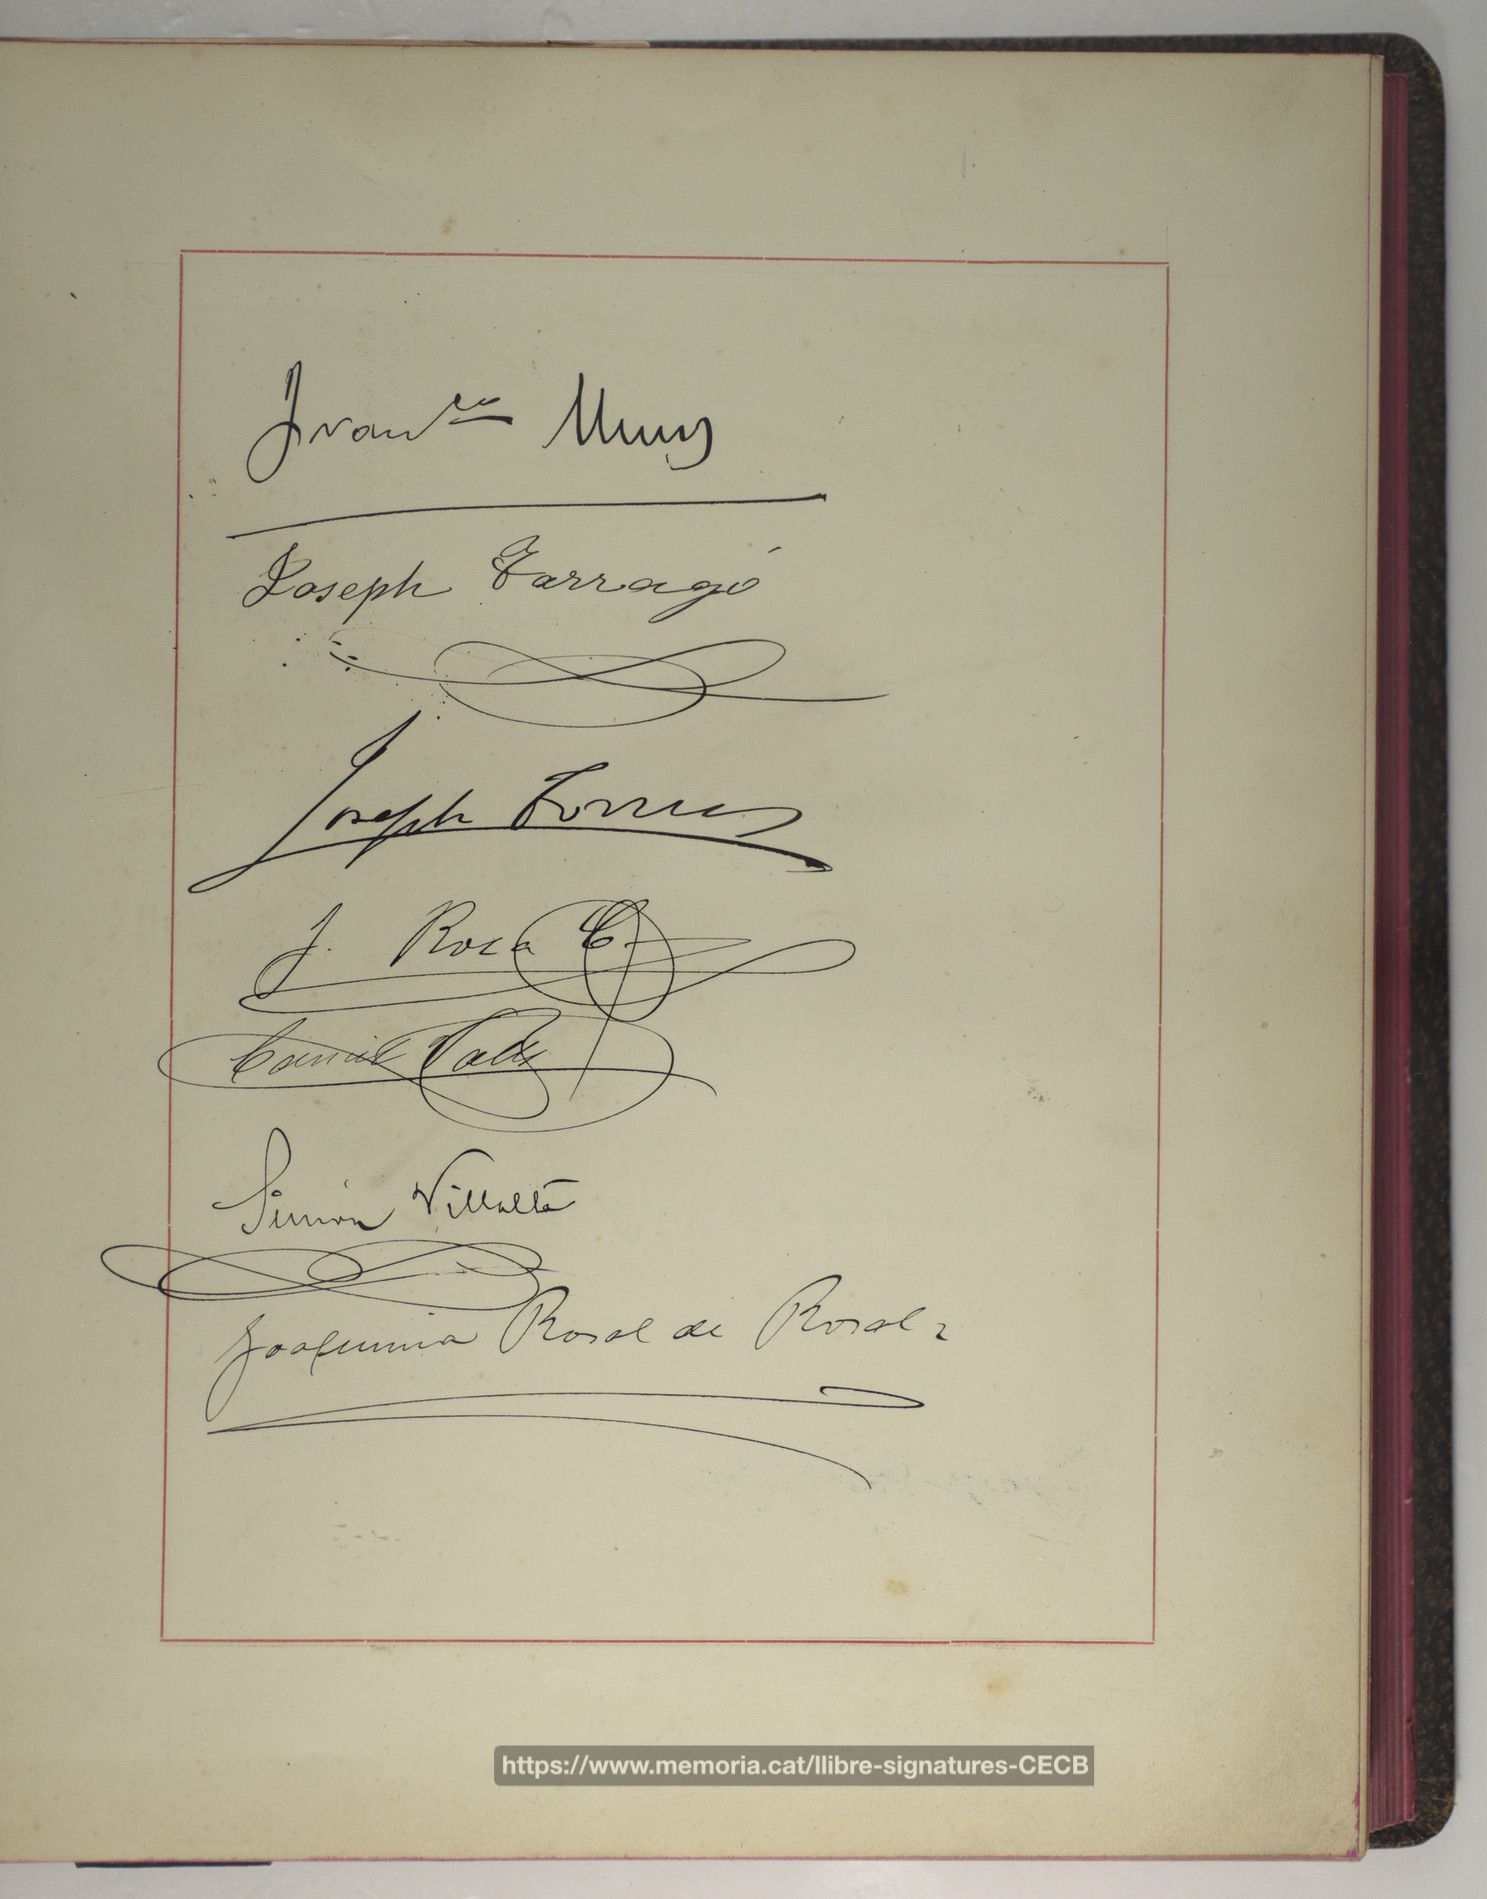 Joseph Tarragó
Joseph Torres
J. Roca C.
Camil
Simón Villaltà
Joaquima Rosal de Rosal
https://www.memoria.cat/llibre-signatures-CECB